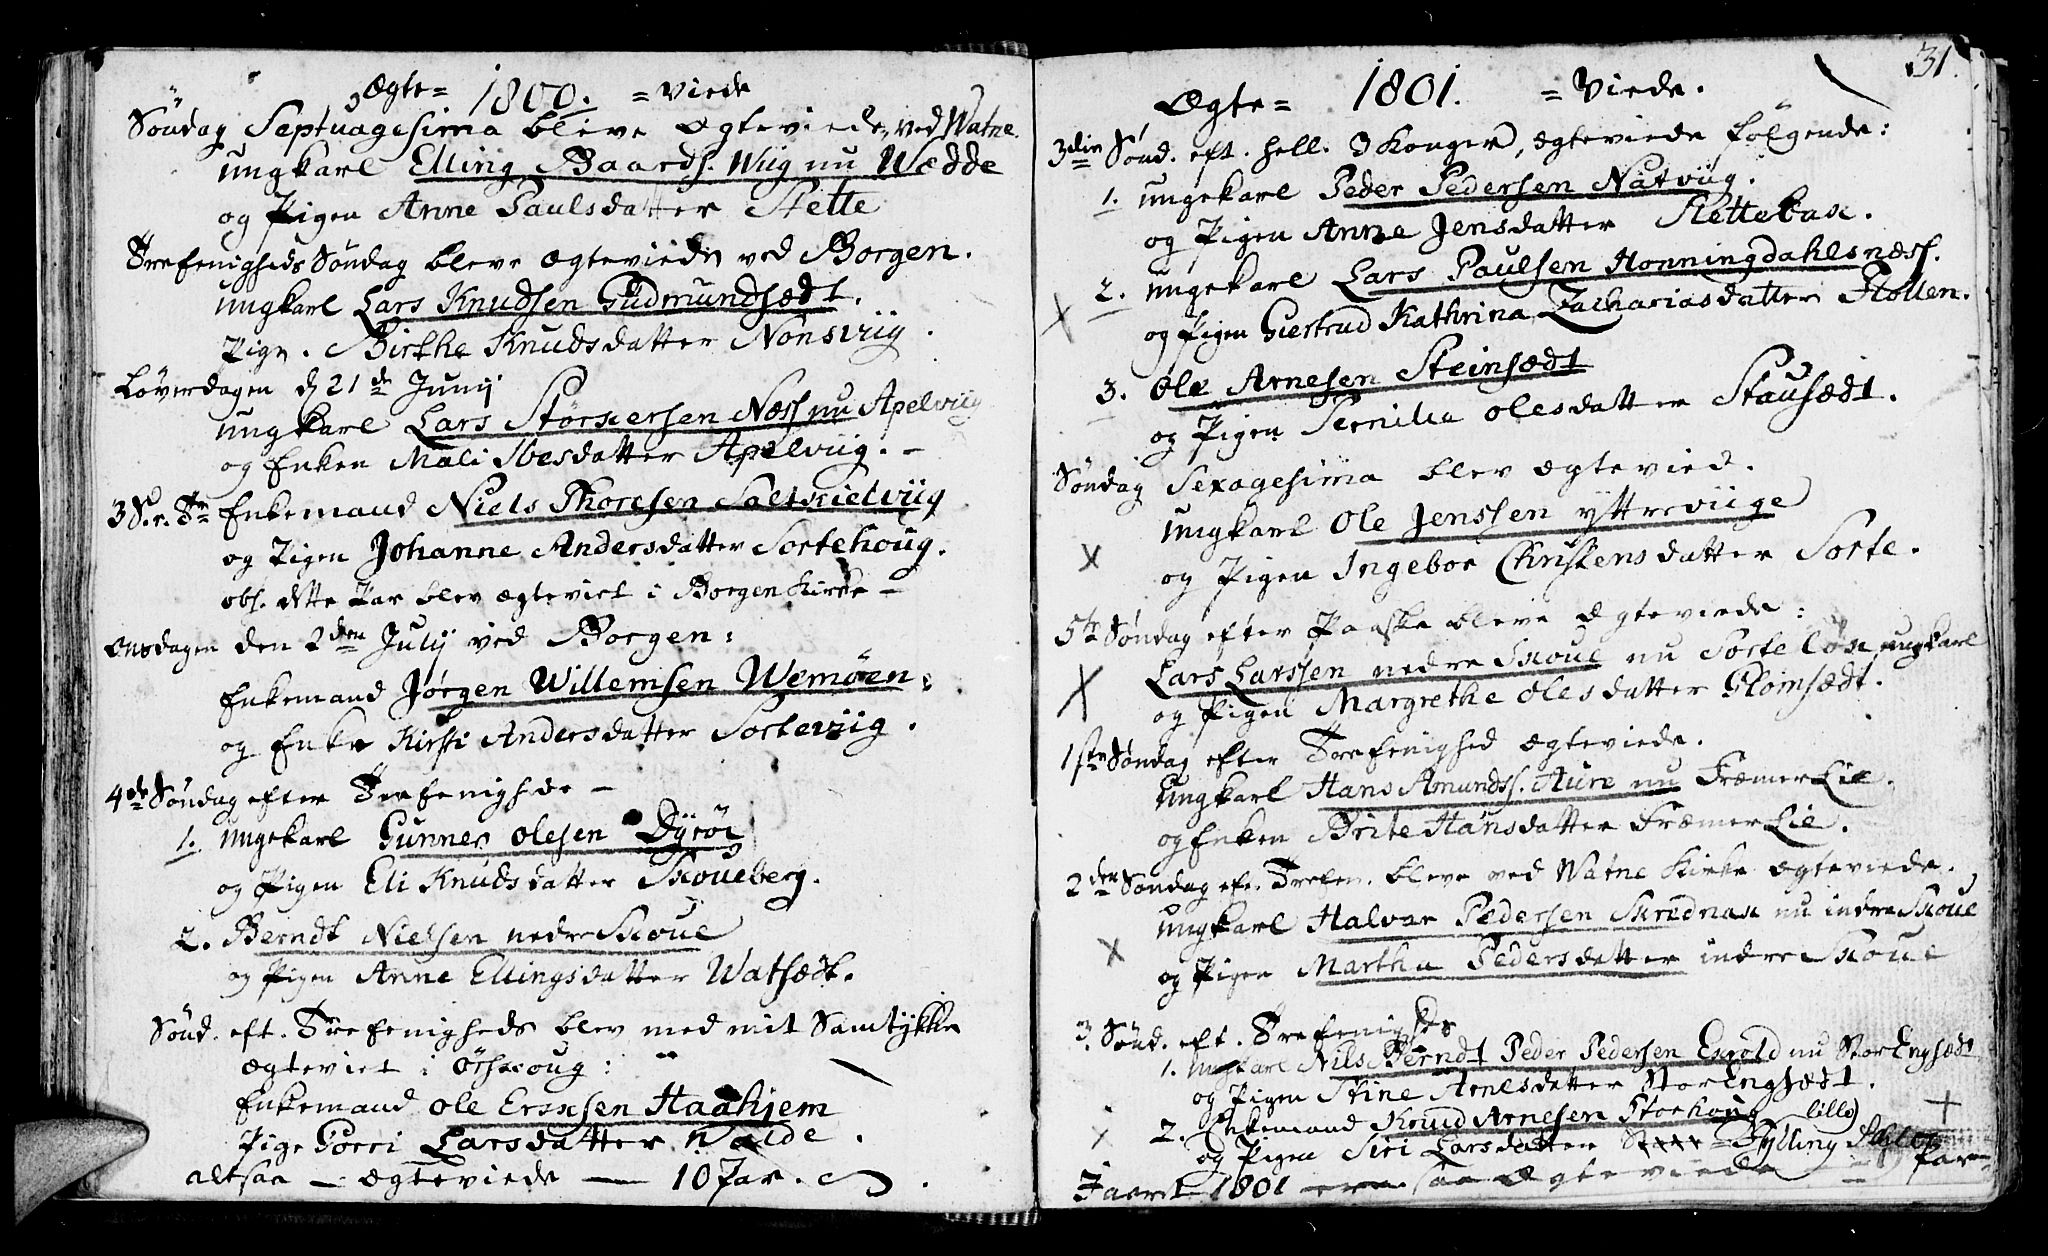 Ægte= 1800. =Viede
Søndag Septuagesima bleve Ægteviede, ved Watne.
ungkarl Elling Baards. Wiig nu Wædde
og Pigen Anne Paulsdatter Slette
Trefenigheds Søndag bleve ægteviede ved Borgen.
ungkarl Lars Knudsen Gudmundsædt.
Pige. Birthe Knudsdatter Nonsviig.
Løverdagen d 21de Junij
ungkarl Lars Størkersen Næss nu Apelviig
og Enken Mali Iversdatter Apelviig. -
3 S. e. Tr Enkemand Niels Thoresen Saltkielviig
og Pigen Johanne Andersdatter Sortehoug.
obs. dette Par blev ægteviet i Borgen Kirke -
Onsdagen den 2den Julij ved Borgen:
Enkemand Jørgen Willemsen Wemøen:
og Enke Kirsti Andersdatter Sorteviig.
4de Søndag efter Trefenighede -
1. ungekarl Gunner Olesen Dyrøe
og Pigen Eli Knudsdatter Skoueberg.
2. Berndt Nielsen nedre Skoue
og Pigen Anne Ellingsdatter Watsædt.
Sønd. eft. Trefenigheds blev med mit Samtykke
ægteviet i Ørskoug:
Enkemand Ole Ericksen Haahjem
Pige Gorri Larsdatter Walde.
altsaa - ægteviede — 10 Par.
31.
Ægte= 1801. =Viede.
3die Sønd. eft. hell. 3 Konger, ægteviede følgende:
1. ungekarl Peder Pedersen Natviig.
og Pigen Anne Jensdatter Slettebak.
2. ungekarl Lars Paulsen Honningdahlsnæss.
og Pigen Giertrud Kathrina Zachariasdatter Flotten.
3. Ole Arnesen Steinsædt
og Pigen Pernille Olesdatter Stausædt.
Søndag Sexagesima blev ægtevied.
ungkarl Ole Jenssen yttreviige
og Pigen Ingebor Christensdatter Sorte.
5te Søndag efter Paaske bleve Ægteviede:
Lars Larssen nedre Skoue nu Sorteløk, ungkarl
og Pigen Margrethe Olesdatter Glomsædt.
1ste Søndag efter Trefenighed ægteviede.
Ungkarl Hans Amundss. Aure nu FræmerLie.
og Enken Brite Hansdatter FræmerLie.
2den Søndag eft. Trefen. bleve ved Watne Kirke ægteviede.
ungkarl Halvar Pedersen Skrednak nu indre Skoue
og Pigen Martha Pedersdatter indre Skoue
3. Sønd. eft. Trefenigheds
1. ungkarl Nils Berndt Peder Pedersen Exvold nu StorEngsædt
og Pigen Stine Arnesdatter StorEngsædt.
2. Enkemand Knud Arnesen Storhoug
og Pigen Siri Larsdatter Fylling (lille)
I aaret 1801 ere saa Ægteviede Par